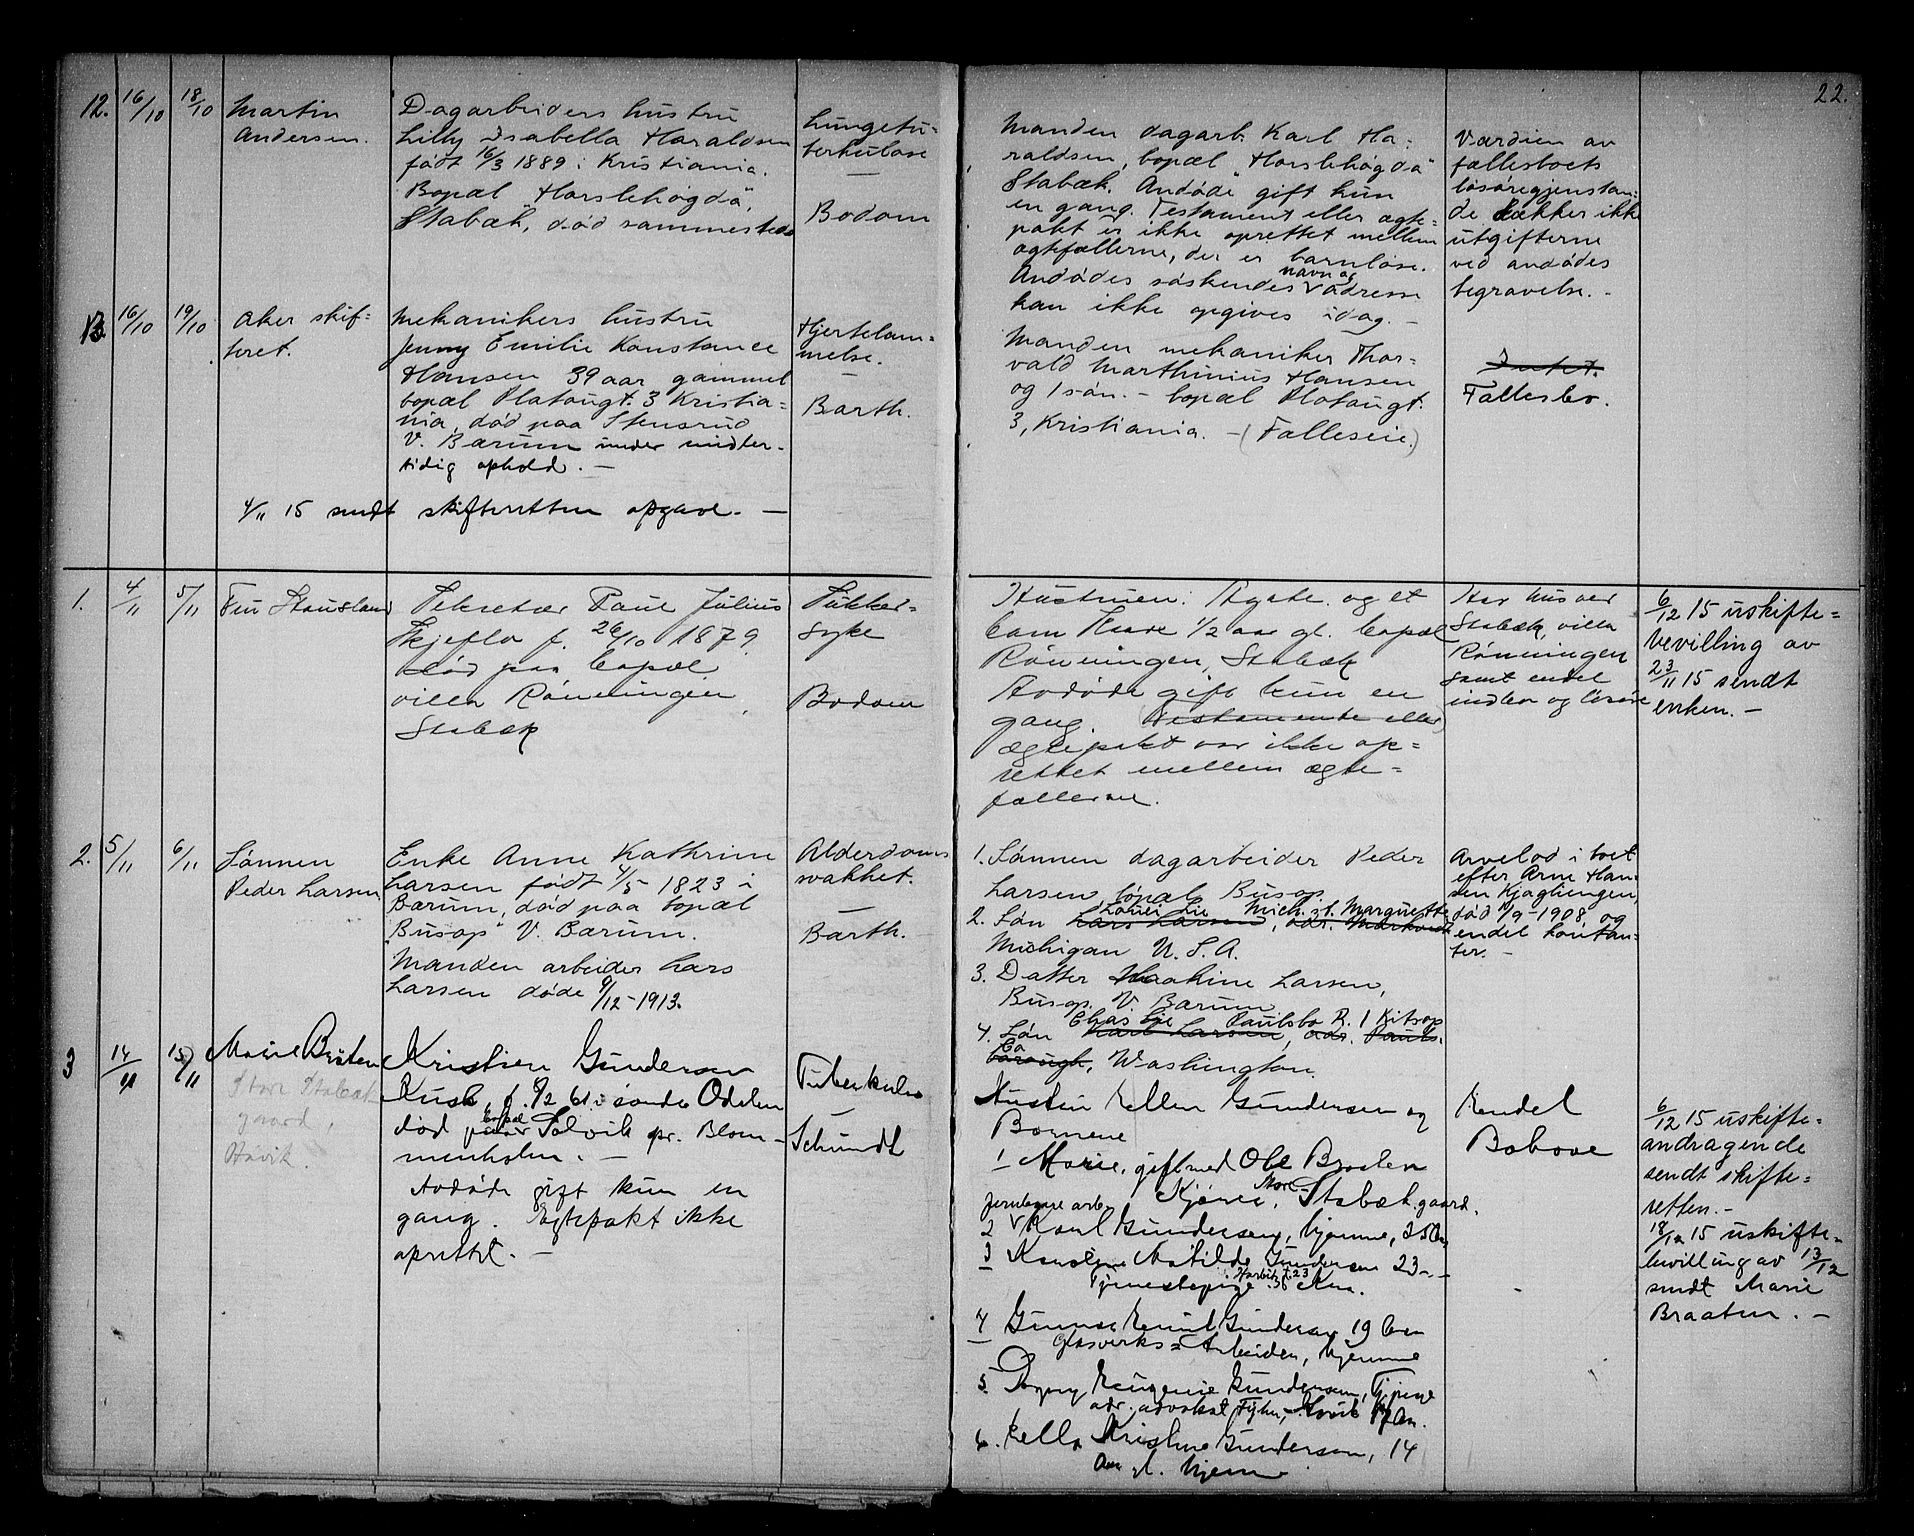 22.
12. 16/10 18/10 Martin
Andersen.
Dagarbeiders hustru
Lilly Isabella Haraldsen
født 16/3 1889 i Kristiania.
Bopæl "Horslehøgda",
Stabæk, død sammesteds
Lungetu-
berkulose
Bodom
Manden dagarb. Karl Ha-
raldsen, bopæl "Horslehøgda"
Stabæk. Avdøde gift kun
en gang. Testament eller ægte-
pakt er ikke oprettet mellem
ægtefællerne, der er barnløse.
Avdødes søskendes navn og adresse
kan ikke opgives idag. -
Værdien av
fællesboets
løsøregjenstan-
de dækker ikke
utgifterne
ved avdødes
begravelse. -
13. 16/10 19/10 Aker skif-
teret.
Mekanikers hustru
Jenny Emilie Konstance
Hansen 39 aar gammel
bopæl Platougt. 3 Kristia-
nia, død paa Stensrud
V. Bærum under midler-
tidig ophold. -
Hjertelam-
melse.
Barth.
Manden mekaniker Thor-
vald Marthinius Hansen
og 1 søn. - bopæl Platougt.
3, Kristiania. - (Fælleseie.)
Intet.
Fællesbo.
4/11 15 sendt skifteretten opgave. -
1. 4/11 5/11 Stousland
Sekretær Paul Julius
Skjeflo f. 26/10 1879
død paa bopæl
villa Rønningen,
Stabæk
Sukker-
syke
Bodom
Hustruen: Agate og et
barn 1/2 aar gl. bopæl
Rønningen, Stabæk
Avdøde gift kun en
gang. Testamente eller
ægtepakt var ikke op-
rettet mellem ægte-
fællerne.
Har hus ved
Stabæk, villa
Rønningen
samt endel
indbo og løsøre
6/12 15 uskifte-
bevilling av
23/11 15 sendt
enken. -
2. 5/11 6/11 Sønnen
Peder Larsen
Enke Anne Kathrine
Larsen født 4/5 1823 i
Bærum, død paa bopæl
"Busop" V. Bærum.
Manden arbeider Lars
Larsen døde 9/12-1913.
Alderdoms
svakhet.
Barth.
1. Sønnen dagarbeider Peder
Larsen, bopæl Busop.
2. Søn Lars Larsen, Louis Lie Mich. st. Marquette
Michigan U. S. A.
3. Datter Larsen,
Busop, V. Bærum
4. Søn Karl Larsen, adr. Chas Lie Paulsbo R. 1 Kitsap
Co Washington.
Arvelod i boet
efter Arne Han-
sen Kjaglien­gen,
død /9-1908 og
endel kontan-
ter. -
3 14/11 15/11 Marie Braten
Store Stabæk
gaard,
Høvik.
Kristian Gundersen
f. 9/2 61 i søndre Odalen
død paa bopæl Solvik pr. Blom-
menholm. -
Avdøde gift kun en
gang. Ægtepakt ikke
oprettet. -
Tuberkulose
Schmidt
Hustru Ellen Gundersen og
Børnene
1 Marie, gift med Ole Braaten
Store Stabæk gaard.
2 Karl Gundersen, hjemme,
3 Karoline Matilde Gundersen 23 -
tjenestepige
4 Gunnar Emil Gundersen 19 aar
Glasverks-Arbeider, hjemme
5. Dagny Eugenie Gundersen, tjener
adr. advokat
6. Ella Kristine Gundersen, 14
Aar gl. hjemme
Endel
Bohave
6/12 15 uskifte-
andragende
sendt skifte-
retten. -
18/12 15 uskifte-
bevilling av 13/12
sendt Marie
Braaten. -